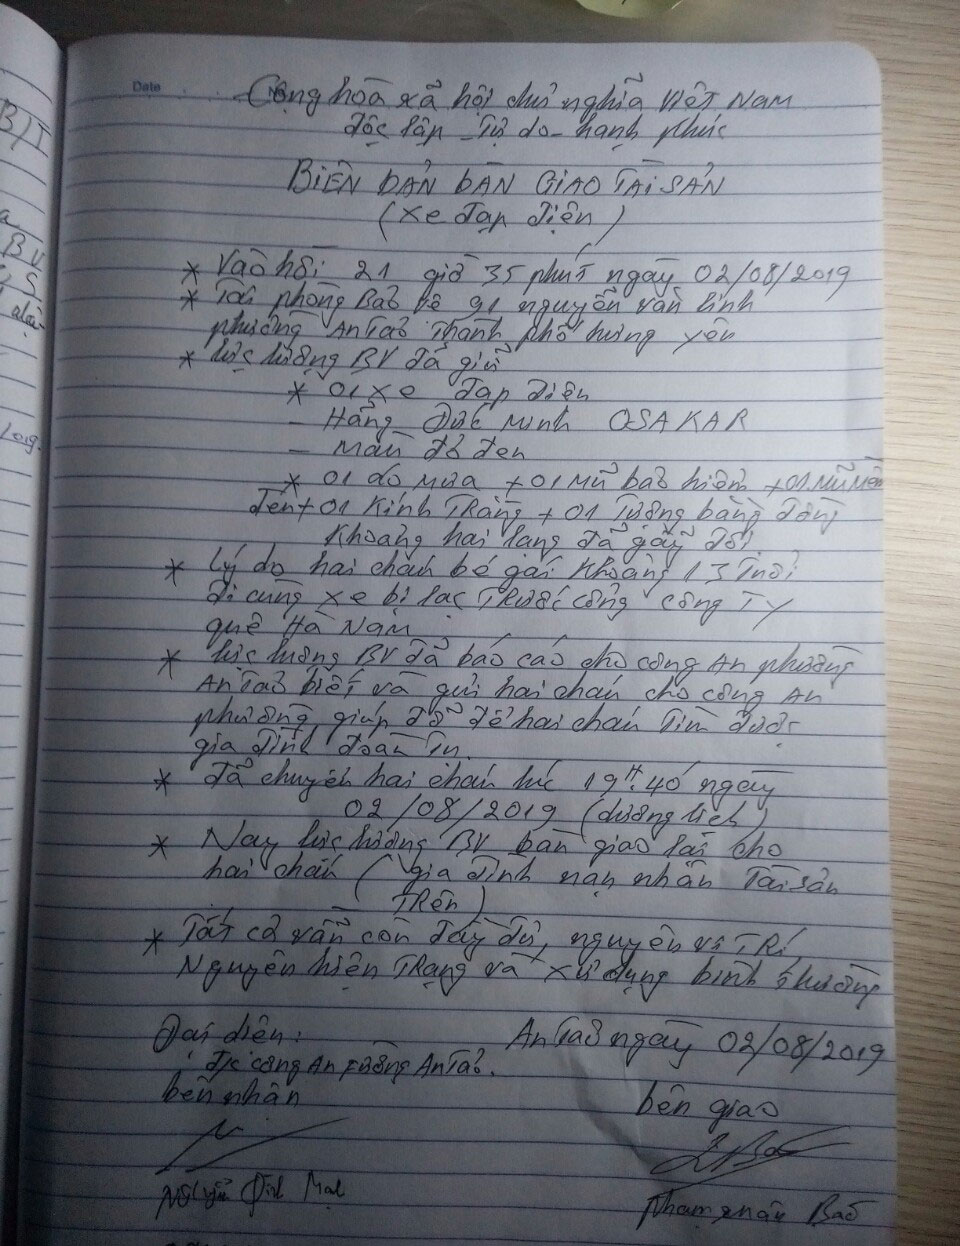 Date
No
Cộng hòa xã hội chủ nghĩa Việt Nam
độc lập - Tự do - hạnh phúc
BIÊN BẢN BÀN GIAO TÀI SẢN
(Xe đạp điện)
* Vào hồi 21 giờ 35 phút ngày 02/08/2019
* Tại phòng Bảo vệ 91 nguyễn văn linh
phường An Tảo Thành phố hưng yên
* lực lượng BV đã giữ
* 01 xe đạp điện
- Hãng Đức Minh OSAKAR
- Màu đỏ đen
* 01 áo mưa + 01 mũ bảo hiểm + 01 Mũ Mềm
đen + 01 Kính Trắng + 01 Tượng bằng đồng
Khoảng hai lạng đã gãy đôi
* Lý do hai cháu bé gái Khoảng 13 Tuổi
đi cùng xe bị lạc TRước cổng công Ty
quê Hà Nam
* lực lượng BV đã báo cáo cho công An phường
An Tảo biết và gửi hai cháu cho công An
phường giúp đỡ để hai cháu Tìm được
gia đình đoàn Tụ.
* đã chuyển hai cháu lúc 19H.40 ngày
02/08/2019 (dương lịch)
* Nay lực lượng BV bàn giao lại cho
hai cháu (gia đình nạn nhân Tài sản
TRên)
* Tất cả vẫn còn đầy đủ, nguyên vị TRí
Nguyên hiện TRạng và xử dụng bình thường
Đại diện:
An Tảo ngày 02/08/2019
đ/c công An Fường An Tảo.
bên nhận
bên giao
Nguyễn Đình Mạnh
Phạm xuân Bảo